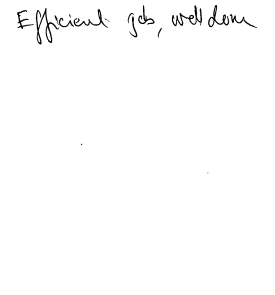 Efficient job, well done